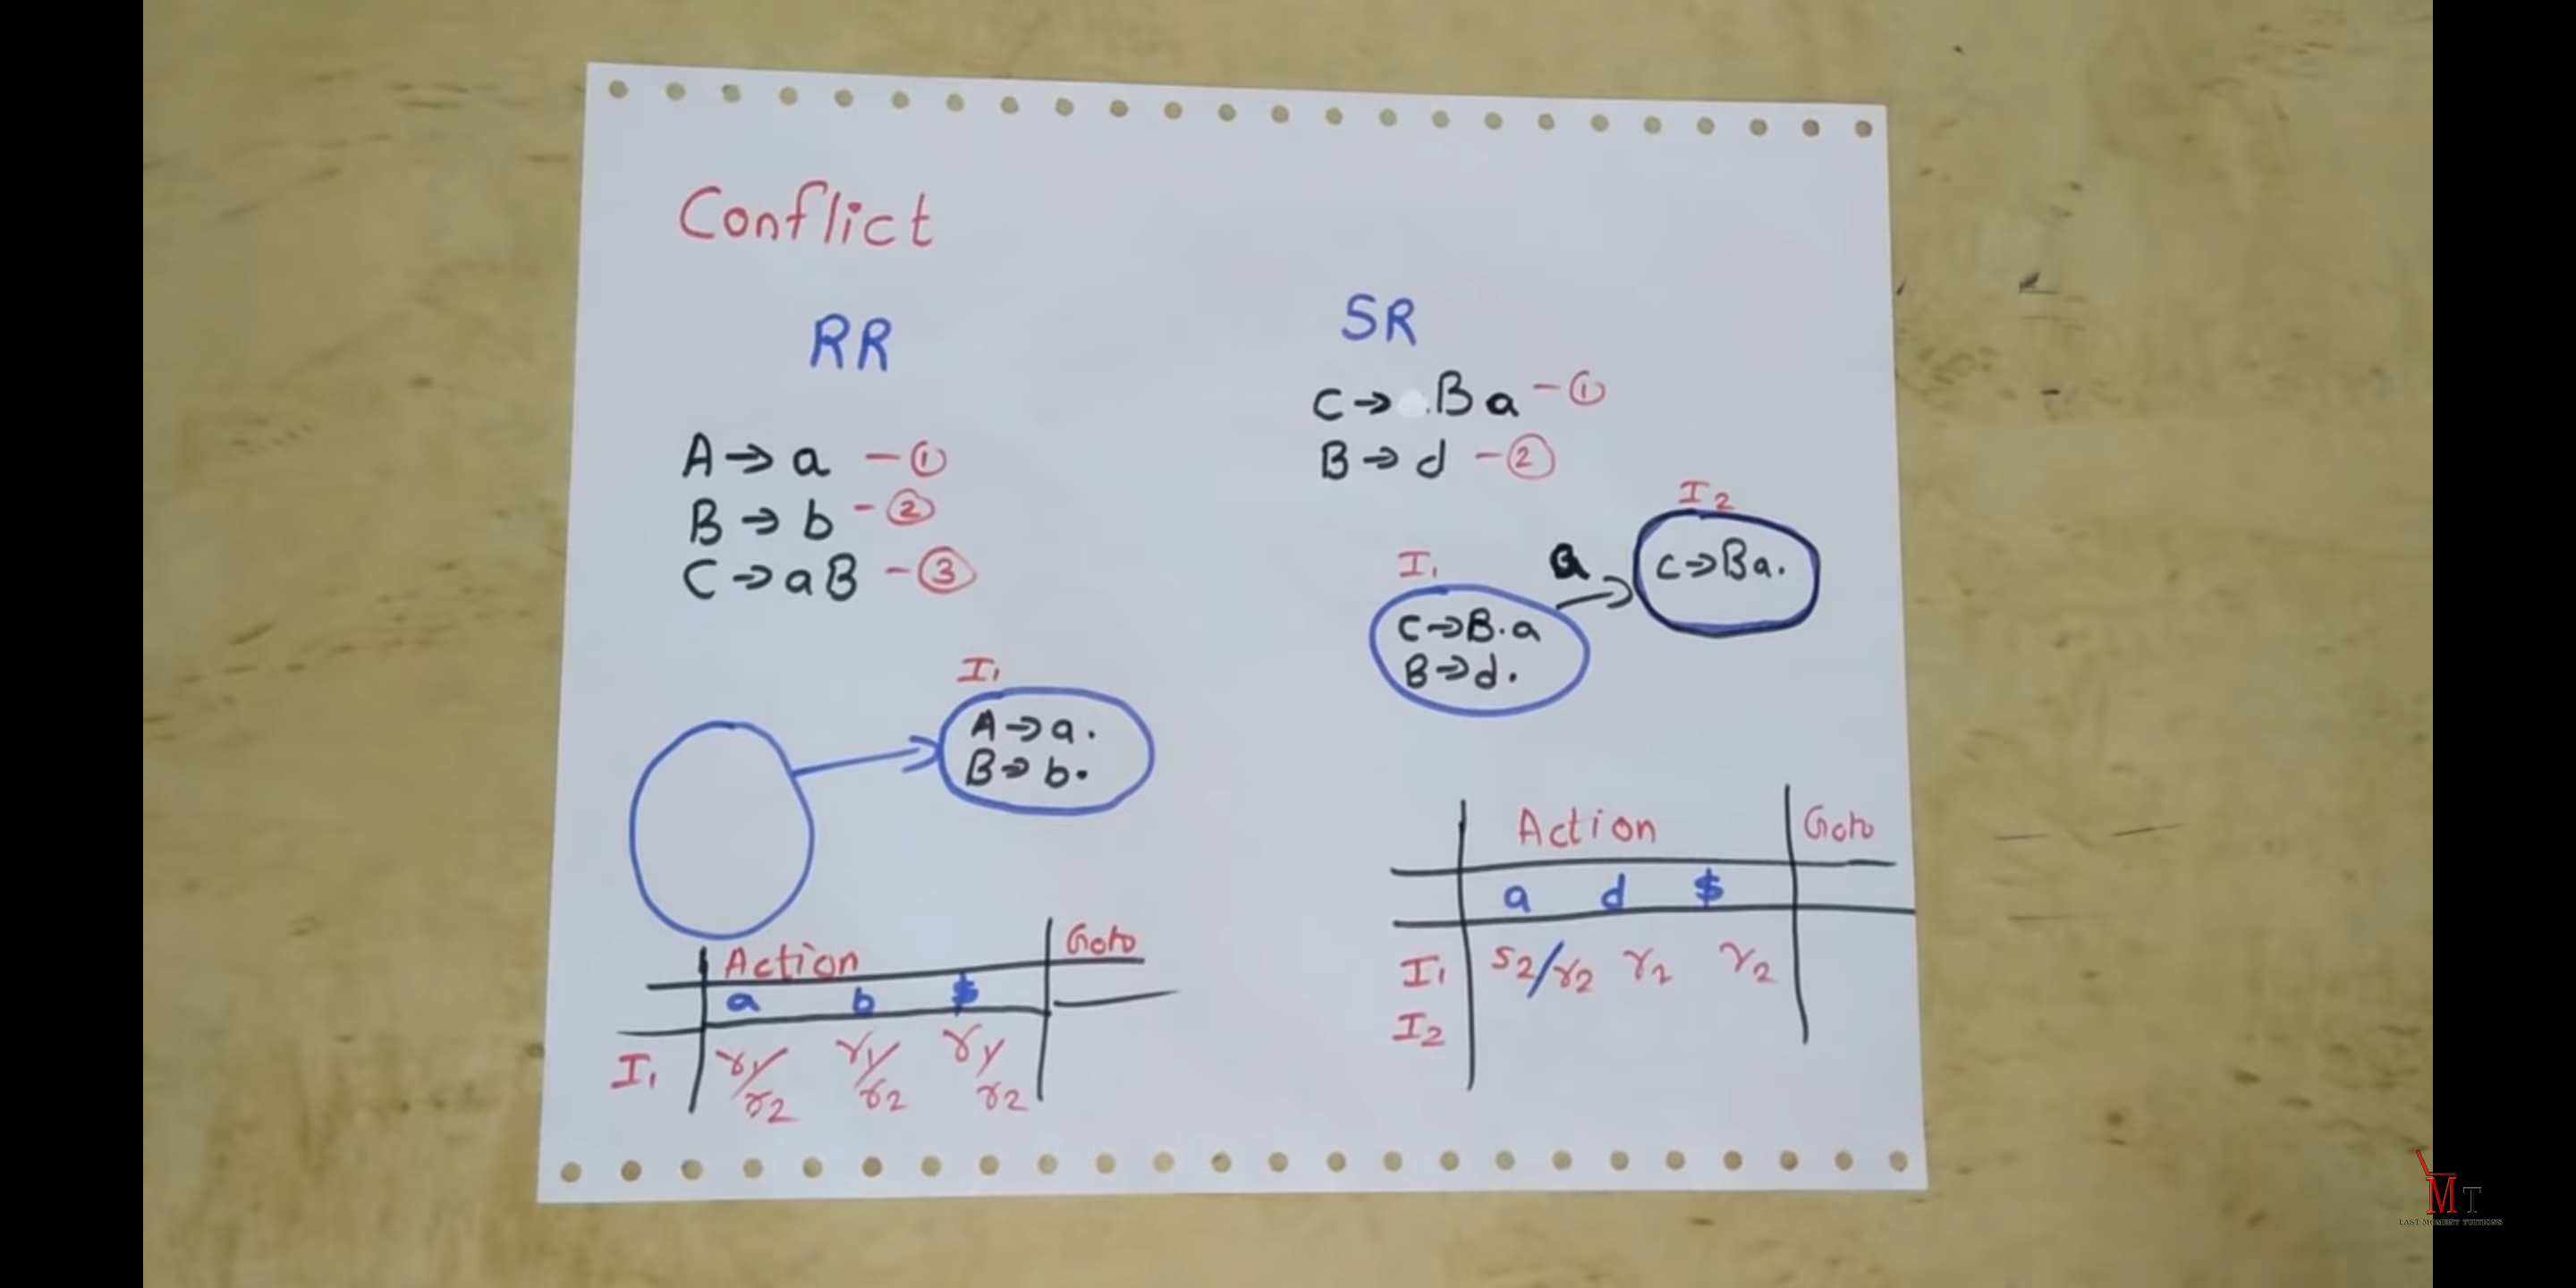 Conflict
RR
A → a - ①
B → b - ②
C → aB - ③
I₁
A → a.
B → b.
Action Goto
a b $
I₁ r₁/r₂ r₁/r₂ r₁/r₂
SR
C → .Ba - ①
B → d - ②
I₁
C → B.a
B → d.
a
I₂
C → Ba.
Action Goto
a d $
I₁ S2/r2 r2 r2
I₂
MT
LAST MOMENT TUITIONS